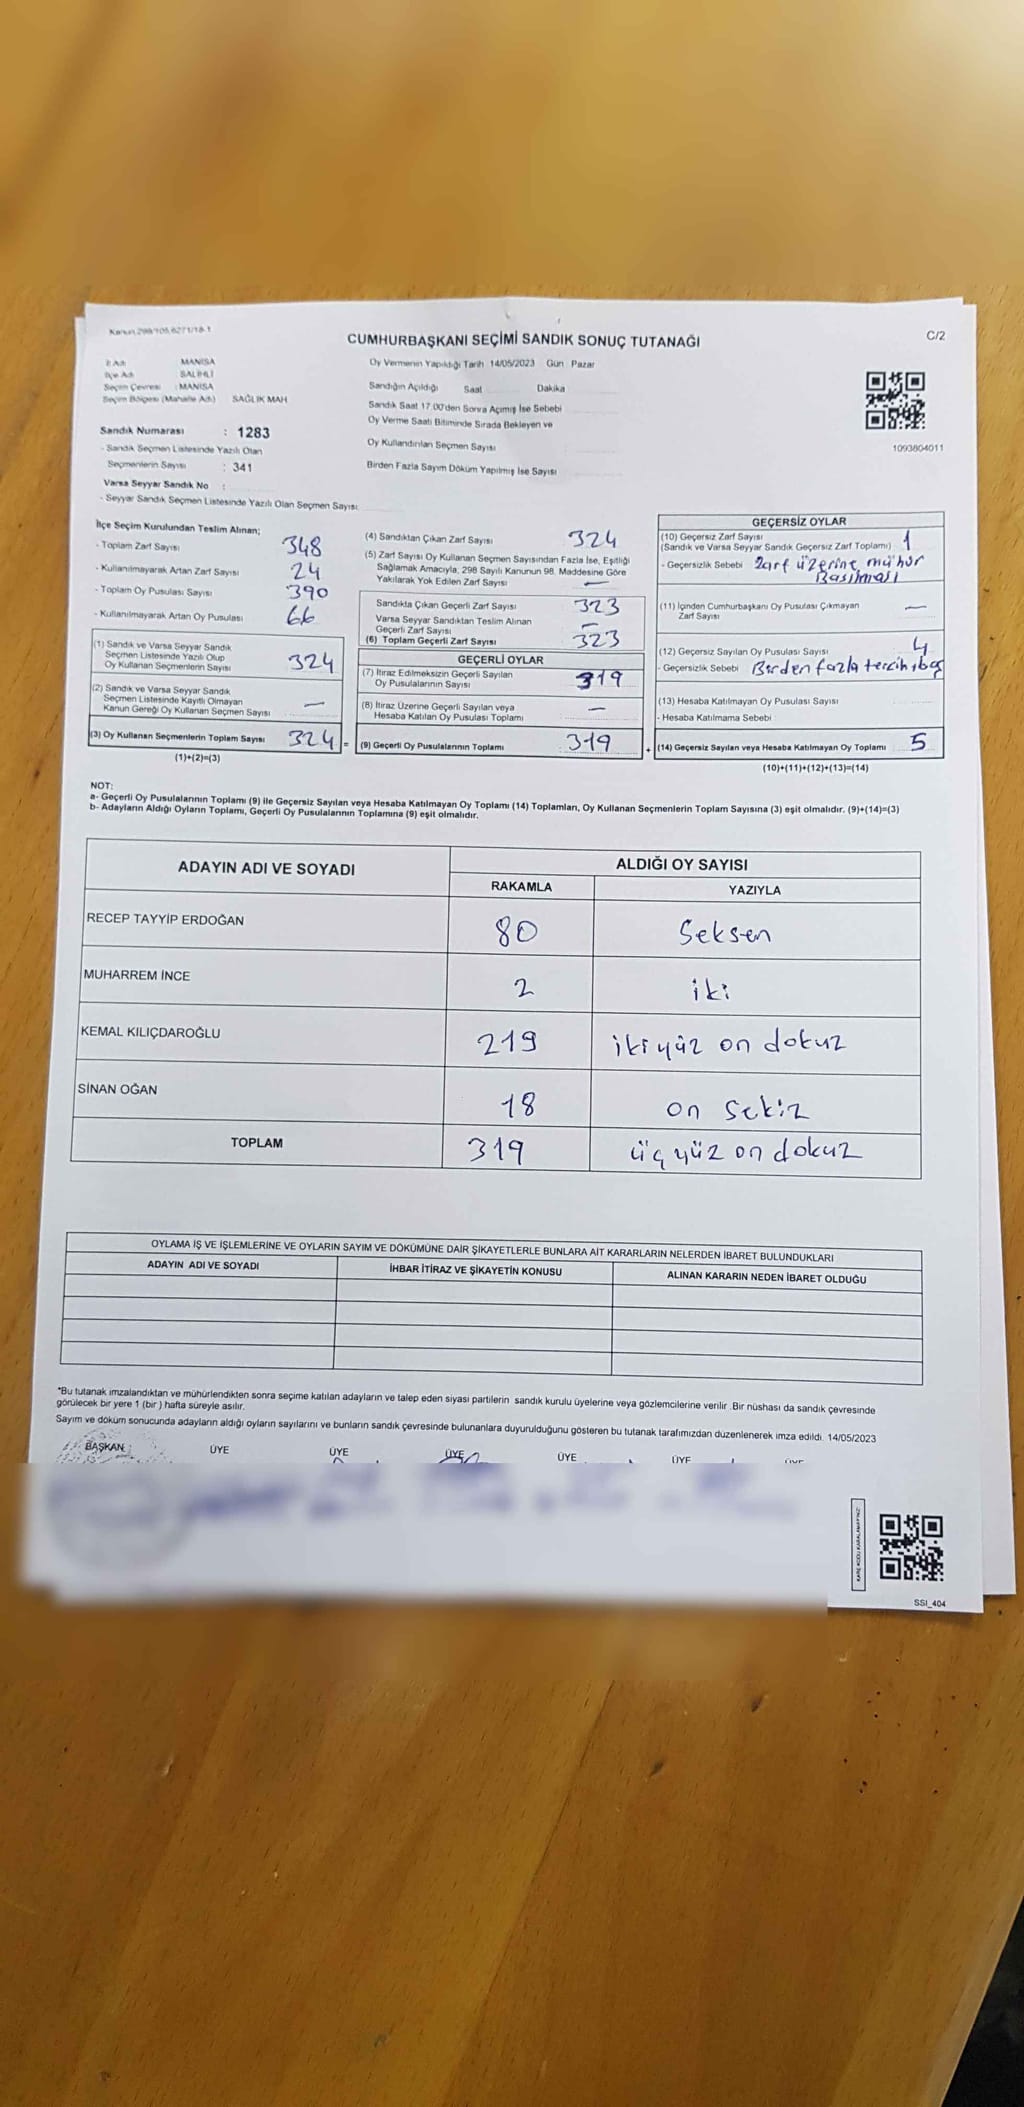 Kanun,298/105,6271/18-1
CUMHURBAŞKANI SEÇİMİ SANDIK SONUÇ TUTANAĞI
C/2
İl Adı MANİSA
İlçe Adı SALİHLİ
Seçim Çevresi : MANİSA
Seçim Bölgesi (Mahalle Adı) SAĞLIK MAH
Sandık Numarası : 1283
- Sandık Seçmen Listesinde Yazılı Olan
Seçmenlerin Sayısı : 341
Varsa Seyyar Sandık No :
- Seyyar Sandık Seçmen Listesinde Yazılı Olan Seçmen Sayısı
Oy Vermenin Yapıldığı Tarih 14/05/2023 Gün Pazar
Sandığın Açıldığı Saat Dakika
Sandık Saat 17.00'den Sonra Açımış İse Sebebi
Oy Verme Saati Bitiminde Sırada Bekleyen ve
Oy Kullandırılan Seçmen Sayısı
Birden Fazla Sayım Döküm Yapılmış İse Sayısı
1093804011
İlçe Seçim Kurulundan Teslim Alınan;
- Toplam Zarf Sayısı 348
- Kullanılmayarak Artan Zarf Sayısı 24
- Toplam Oy Pusulası Sayısı 390
- Kullanılmayarak Artan Oy Pusulası 66
(1) Sandık ve Varsa Seyyar Sandık
Seçmen Listesinde Yazılı Olup
Oy Kullanan Seçmenlerin Sayısı 324
(2) Sandık ve Varsa Seyyar Sandık
Seçmen Listesinde Kayıtlı Olmayan
Kanun Gereği Oy Kullanan Seçmen Sayısı —
(3) Oy Kullanan Seçmenlerin Toplam Sayısı 324 =
(1)+(2)=(3)
(4) Sandıktan Çıkan Zarf Sayısı 324
(5) Zarf Sayısı Oy Kullanan Seçmen Sayısından Fazla İse, Eşitliği
Sağlamak Amacıyla; 298 Sayılı Kanunun 98. Maddesine Göre
Yakılarak Yok Edilen Zarf Sayısı —
Sandıkta Çıkan Geçerli Zarf Sayısı 323
Varsa Seyyar Sandıktan Teslim Alınan
Geçerli Zarf Sayısı —
(6) Toplam Geçerli Zarf Sayısı 323
GEÇERLİ OYLAR
(7) İtiraz Edilmeksizin Geçerli Sayılan
Oy Pusulalarının Sayısı 319
(8) İtiraz Üzerine Geçerli Sayılan veya
Hesaba Katılan Oy Pusulası Toplamı —
(9) Geçerli Oy Pusulalarının Toplamı 319 +
GEÇERSİZ OYLAR
(10) Geçersiz Zarf Sayısı
(Sandık ve Varsa Seyyar Sandık Geçersiz Zarf Toplamı) 1
- Geçersizlik Sebebi Zarf üzerine mühür
Basılması
(11) İçinden Cumhurbaşkanı Oy Pusulası Çıkmayan
Zarf Sayısı —
(12) Geçersiz Sayılan Oy Pusulası Sayısı 4
- Geçersizlik Sebebi Birden fazla tercih
(13) Hesaba Katılmayan Oy Pusulası Sayısı
- Hesaba Katılmama Sebebi
(14) Geçersiz Sayılan veya Hesaba Katılmayan Oy Toplamı 5
(10)+(11)+(12)+(13)=(14)
NOT:
a- Geçerli Oy Pusulalarının Toplamı (9) ile Geçersiz Sayılan veya Hesaba Katılmayan Oy Toplamı (14) Toplamları, Oy Kullanan Seçmenlerin Toplam Sayısına (3) eşit olmalıdır. (9)+(14)=(3)
b- Adayların Aldığı Oyların Toplamı, Geçerli Oy Pusulalarının Toplamına (9) eşit olmalıdır.
ADAYIN ADI VE SOYADI
ALDIĞI OY SAYISI
RAKAMLA YAZIYLA
RECEP TAYYİP ERDOĞAN 80 Seksen
MUHARREM İNCE 2 iki
KEMAL KILIÇDAROĞLU 219 ikiyüz on dokuz
SİNAN OĞAN 18 on sekiz
TOPLAM 319 üçyüz on dokuz
OYLAMA İŞ VE İŞLEMLERİNE VE OYLARIN SAYIM VE DÖKÜMÜNE DAİR ŞİKAYETLERLE BUNLARA AİT KARARLARIN NELERDEN İBARET BULUNDUKLARI
ADAYIN ADI VE SOYADI İHBAR İTİRAZ VE ŞİKAYETİN KONUSU ALINAN KARARIN NEDEN İBARET OLDUĞU
*Bu tutanak imzalandıktan ve mühürlendikten sonra seçime katılan adayların ve talep eden siyasi partilerin sandık kurulu üyelerine veya gözlemcilerine verilir. Bir nüshası da sandık çevresinde
görülecek bir yere 1 (bir ) hafta süreyle asılır.
Sayım ve döküm sonucunda adayların aldığı oyların sayılarını ve bunların sandık çevresinde bulunanlara duyurulduğunu gösteren bu tutanak tarafımızdan düzenlenerek imza edildi. 14/05/2023
BAŞKAN ÜYE ÜYE ÜYE ÜYE ÜYE
SSI_404